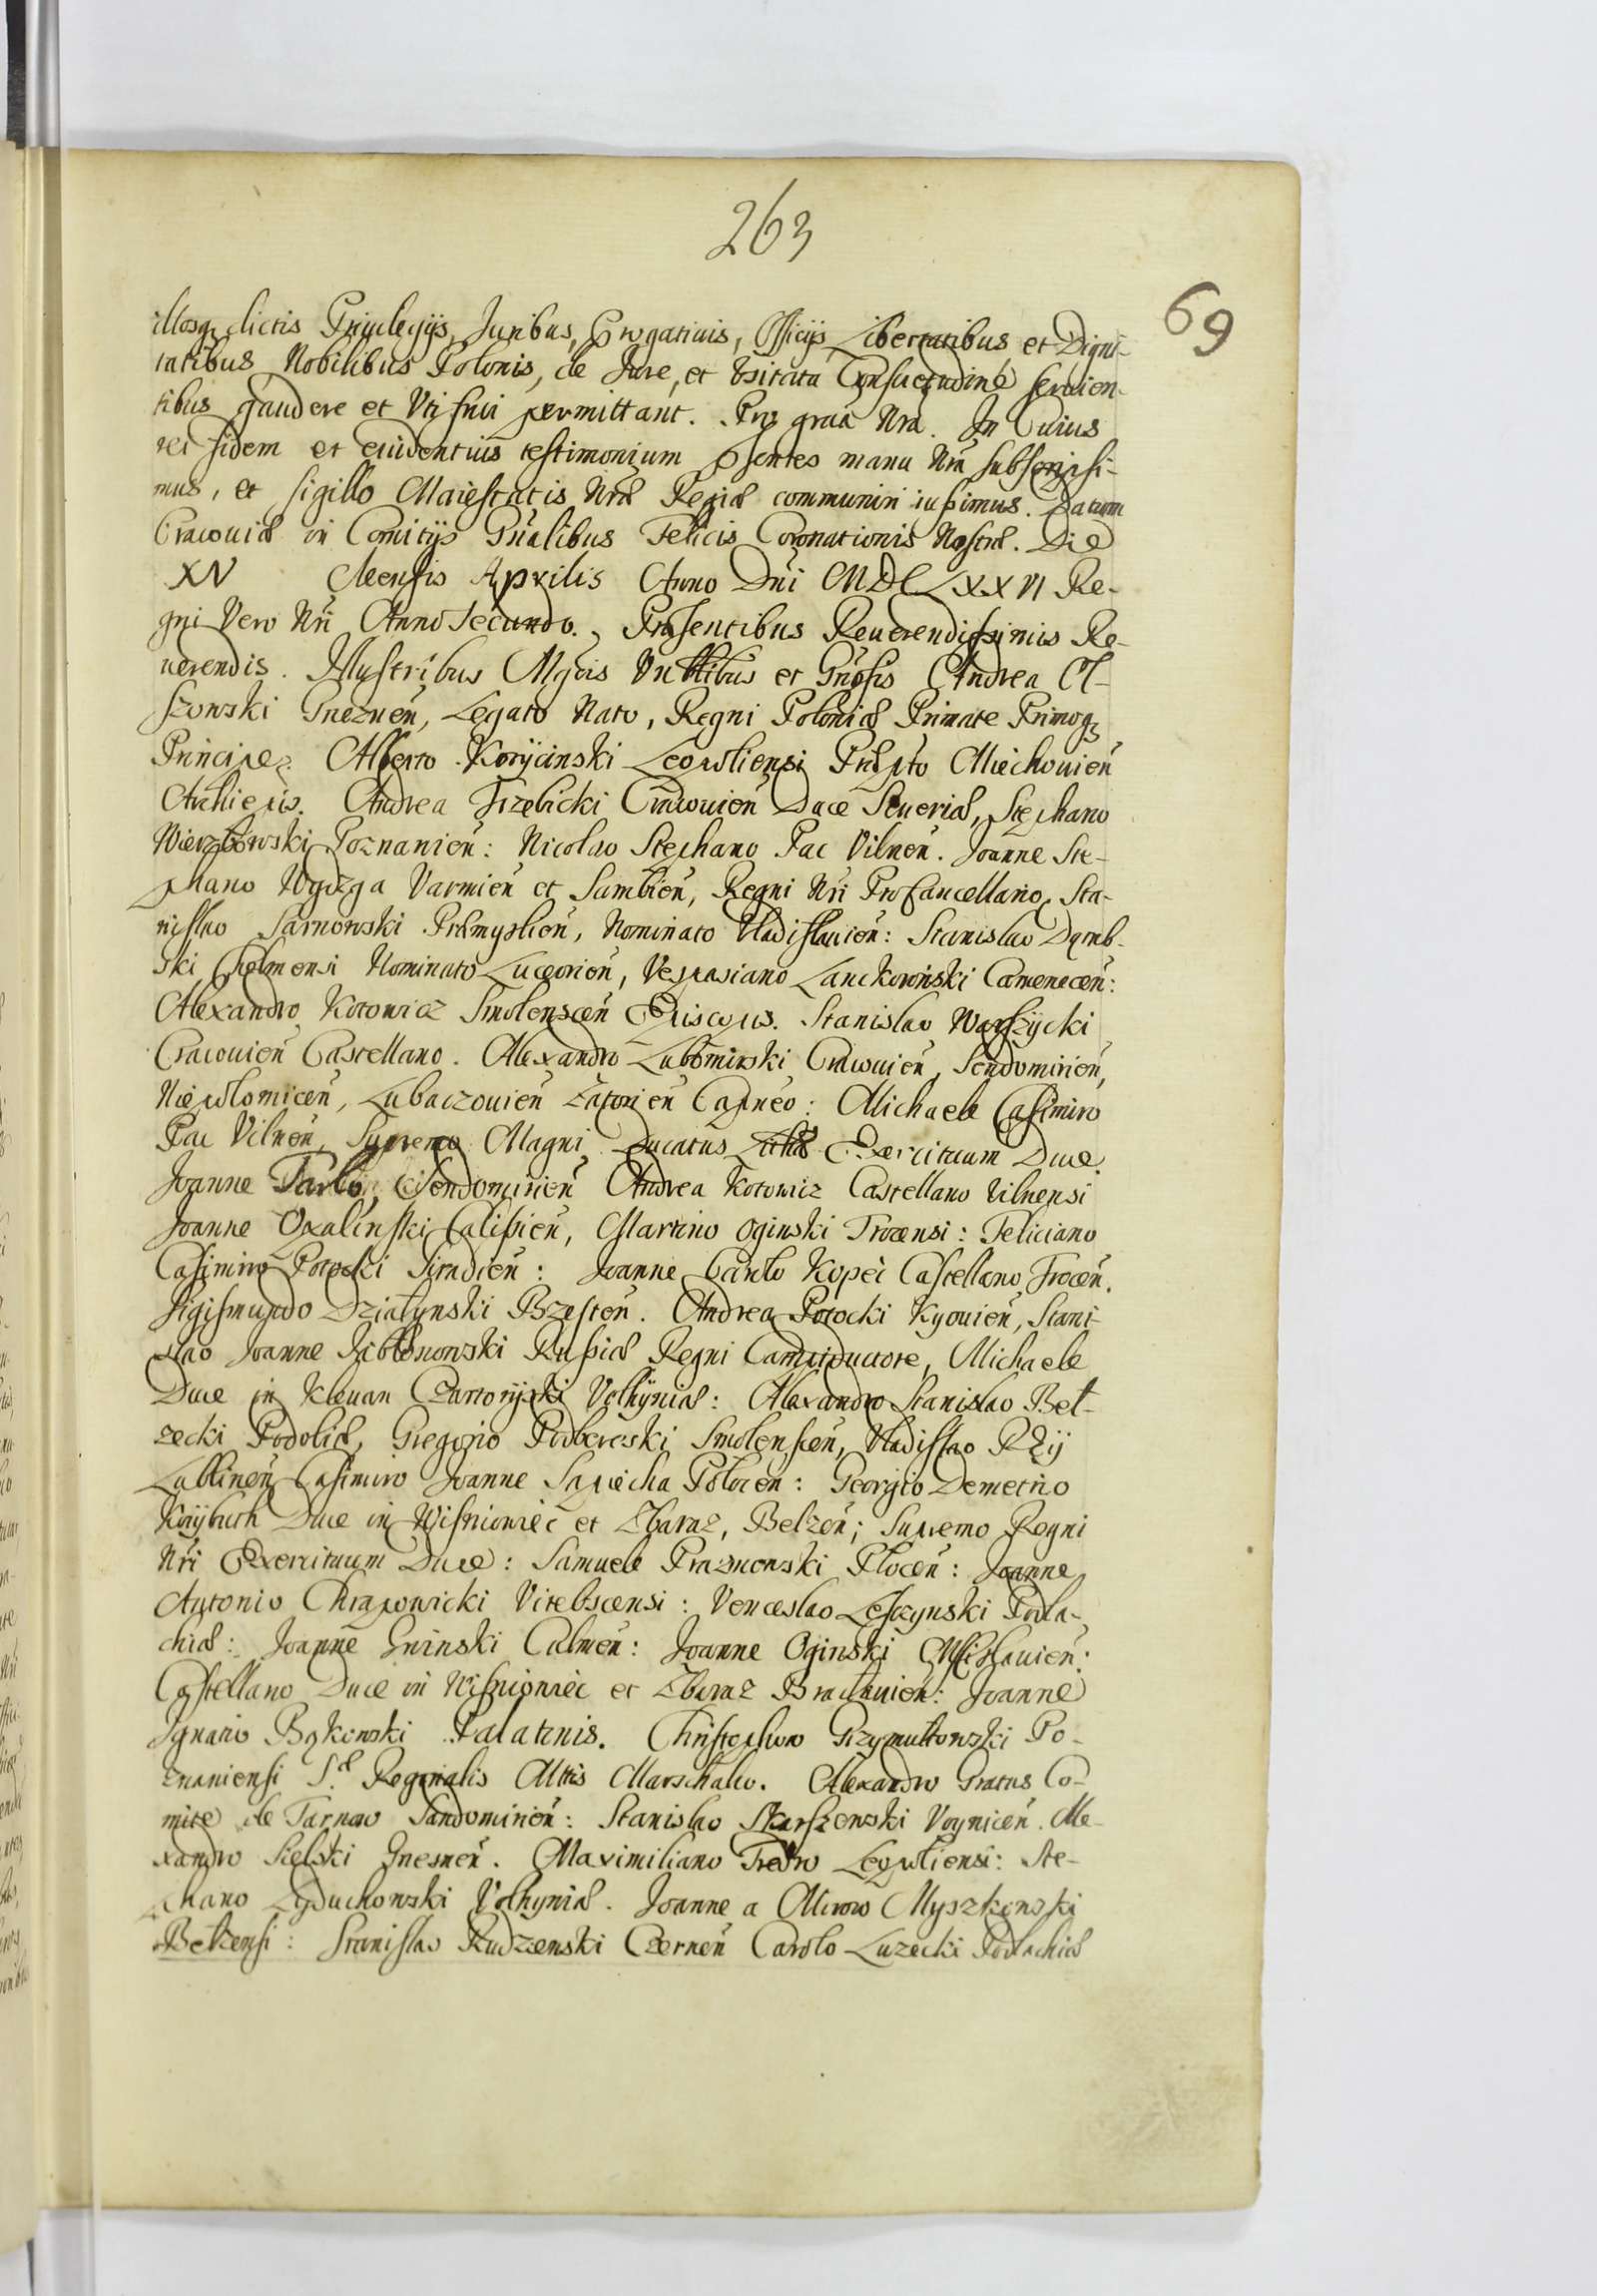 263
69
illosq dictis Priuilegijs, Juribus, Prrogatiuis, Officijs Libertatibus et Digni-
tatibus Nobilibus Polonis, de Jure, et Vsitata Consuetudine seruien-
tibus gaudere et Vti frui permittant. Pro gratia Nrã. In Cuius
rei fidem et euidentius testimonium p̃sentes manu Nrã subscripsi-
mus, et sigillo Maiestatis Nræ Regiæ communiri iussimus. Datum
Cracouiæ in Comitijs Gñalibus Felicis Coronationis Nostræ. Die
XV Mensis Aprilis Anno Dñi MDCLXXVI Re-
gni Vero Nri Anno Secundo. Præsentibus Reuerendissimis Re-
uerendis. Illustribus Mgcis Vrbilibus et Gnosis Andrea Ol-
szowski Gneznen̄, Legato Nato, Regni Poloniæ Primate Primoq
Principe: Alberto Koryciński Leopoliensi Præpto Miechouien̄
Archiepis. Andrea Trzebicki Cracouien̄ Duce Seueriæ, Stephano
Wierzbowski Poznanien̄: Nicolao Stephano Pac Vilnen̄. Joanne Ste-
phano Wydzga Varmien̄ et Sambien̄, Regni Nri ProCancellario, Sta-
nislao Sarnowski Præmyslien̄, Nominato Vladislauien̄: Stanislao Dąmb-
ski Chelmensi Nominato Luceorien̄, Vespasiano Lanckoroński Camenecen̄:
Alexandro Kotowicz Smolenscen̄ Episcopis. Stanislao Warszycki
Cracouien̄ Castellano. Alexandro Lubomirski Cracouien̄, Sendomirien̄,
Niepolomicen̄, Lubaczouien̄ Zatorien̄ Capneo: Michaele Casimiro
Pac Vilnen̄, Supremo Magni Ducatus Lithæ Exercituum Duce.
Joanne Tarło, Sendomirien̄ Andrea Kotowicz Castellano Vilnensi
Joanne Opaliński Calissien̄, Martino Oginski Trocensi: Feliciano
Casimiro Potocki Siradien̄: Joanne Carolo Kopeć Castellano Trocen̄.
Sigismundo Działynski Brzesten̄. Andrea Potocki Kyouien̄, Stani-
slao Joanne Jabłonowski Russiæ Regni Campiductore, Michaele
Duce in Klewan Czartoryjski Volhyniæ: Alexandro Stanislao Beł-
zecki Podoliæ, Gregorio Podbereski Smolenscen̄, Vladislao Rey
Lublinen̄ Casimiro Joanne Sapiecha Polocen̄: Georgio Demetrio
Korybuth Duce in Wisniowiec et Zbaraz, Belzen̄; Supremo Regni
Nri Exercituum Duce: Samuele Prazmowski Plocen̄: Joanne
Antonio Chrapowicki Vitebscensi: Venceslao Leszczynski Podla-
chiæ: Joanne Gninski Culmen̄: Joanne Oginski Mscislauien̄:
Castellano Duce in Wisniowiec et Zbaraz Bracławien̄: Joanne
Ignatio Bąkowski Palatinis. Christophoro Grzymułtowski Po-
znaniensi S.æ Reginalis Mttis Marschalco. Alexandro Gratus Co-
mite de Tarnow Sandomirien̄: Stanislao Skarszewski Voynicen̄. Ale-
xandro Sielski Gnesnen̄. Maximiliano Fredro Leopoliensi: Ste-
phano Leduchowski Volhyniæ. Joanne a Mirow Myszkowski
Belzensi: Stanislao Rudzenski Czernen̄ Carolo Luzecki Podlachiæ